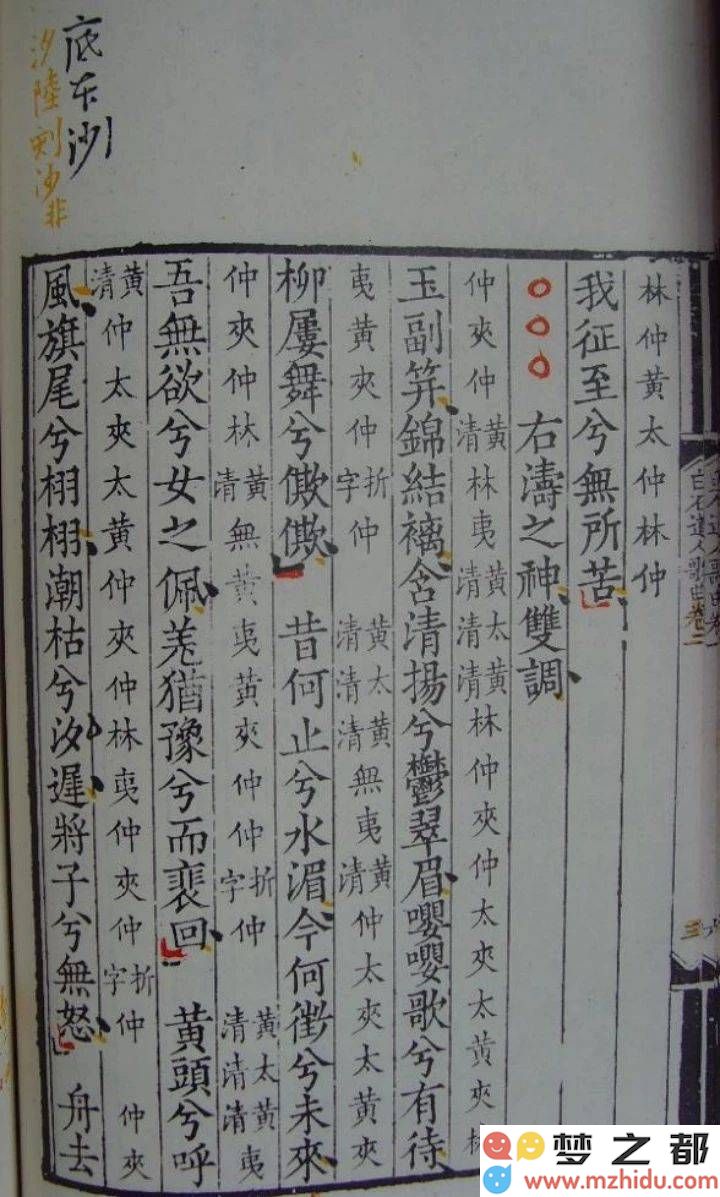 白石道人歌曲卷二
三
林仲黄太仲林仲
我征至兮無所苦
右濤之神雙調
仲夾仲黄清林夷黄清太清黄清林仲夾仲太夾太黄夾
玉副笄錦結褵含清揚兮鬱翠眉嚶嚶歌兮有待
夷黄夾仲折字仲 黄清太清黄清無夷黄清仲太夾太黄夾
柳屢舞兮僛僛 昔何止兮水湄今何徵兮未來
仲夾仲林黄清無黄夷黄夾仲仲折字仲 黄清太清黄清夷
吾無欲兮女之佩羌猶豫兮而裵回 黄頭兮呼
黄清仲太夾太黄仲夾仲林夷仲夾仲折字仲 仲夾
風旗尾兮栩栩潮枯兮汐遲將子兮無怒 舟去
底本沙
汐陸刻沙非
梦之都
www.mzhidu.com